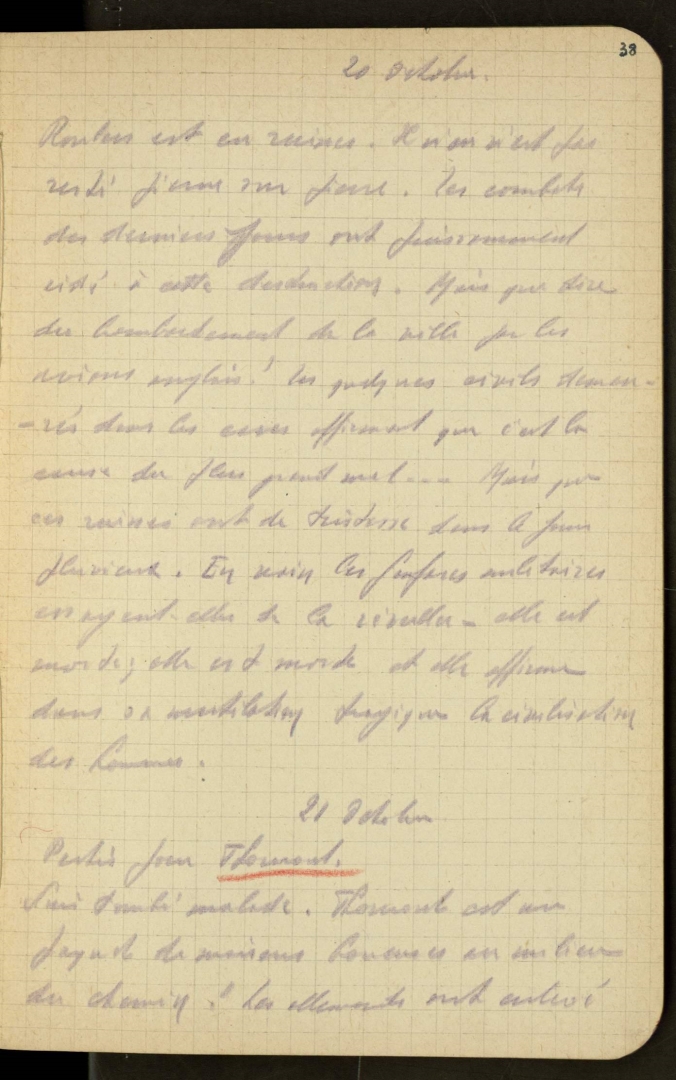 38
20 Octobre.
est en ruines. Il n'est pas
resté pierre sur pierre. Les combats
des derniers jours ont puissamment
aidé à cette destruction. Mais que dire
du bombardement de la ville par les
avions anglais! les quelques civils demeu-
-rés dans les caves affirment que c'est la
cause du plus grand mal... Mais que
ces ruines ont de tristesse dans le jour
pluvieux. En vain les fanfares militaires
essayent-elles de la réveiller - elle est
morte; elle est morte et elle affirme
dans sa mutilation tragique la civilisation
des hommes.
21 Octobre
Partis pour Thormont.
Suis tombé malade. Thormont est un
paquet de maisons boueuses au milieu
du chemin. "Les allemands ont enlevé